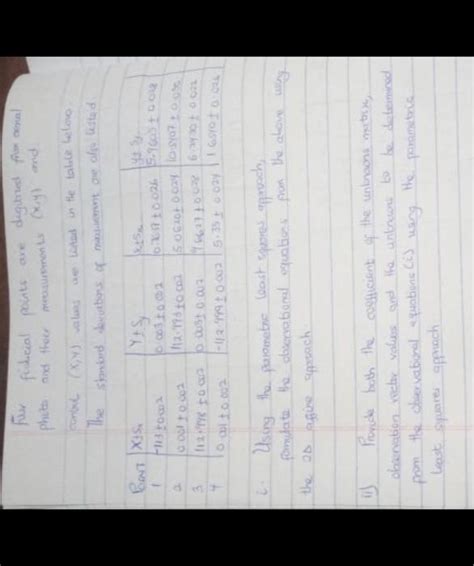 Four fiducial points are digitized from aerial
photo and their measurements (x,y) and
control (X,Y) values are listed in the table below.
The standard deviations of measurement are also listed
Point X±Sx Y±Sy x±Sx y±Sy
1 -113±0.002 0.003±0.002 ±0.026 ±0.028
2 0.001±0.002 112.993±0.002 ±0.024 ±0.030
3 112.998±0.002 0.003±0.002 ±0.028 ±0.022
4 0.001±0.002 -112.999±0.002 ±0.024 ±0.026
i. Using the parametric least squares approach,
formulate the observational equations from the above using
the 2D affine approach
ii) Provide both the coefficient of the unknowns matrix,
observation vector values and the unknowns to be determined
from the observational equations (i) using the parametric
least squares approach